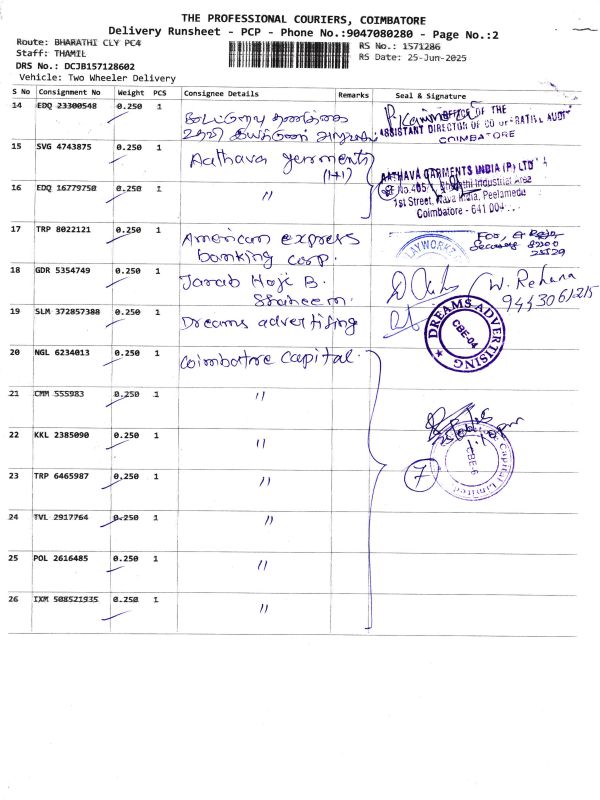 THE PROFESSIONAL COURIERS, COIMBATORE
Delivery Runsheet - PCP - Phone No.:9047080280 - Page No.:2
Route: BHARATHI CLY PC4
Staff: THAMIL
DRS No.: DCJB157128602
Vehicle: Two Wheeler Delivery
RS No.: 1571286
RS Date: 25-Jun-2025
S No Consignment No Weight PCS Consignee Details Remarks Seal & Signature
14 EDQ 23300548 0.250 1
OFFICE OF THE
ASSISTANT DIRECTOR OF CO OPERATIVE AUDIT
COIMBATORE
15 SVG 4743875 0.250 1 Aathava germents
(1+1)
AATHAVA GARMENTS INDIA (P) LTD
1st Street, Nava India, Peelamedu
Coimbatore - 641 004
16 EDQ 16779750 0.250 1 "
17 TRP 8022121 0.250 1 American express
banking corp.
LAYWORKS
For,
18 GDR 5354749 0.250 1 Jarab Haji B.
Shaheem.
W. Rehana
9443061215
19 SLM 372857388 0.250 1 Dreams advertising
DREAMS ADVERTISING
CBE-04
20 NGL 6234013 0.250 1 Coimbatore Capital.
21 CMM 555983 0.250 1 "
22 KKL 2385090 0.250 1 "
Capital Limited
CBE-6
7
23 TRP 6465987 0.250 1 "
24 TVL 2917764 0.250 1 "
25 POL 2616485 0.250 1 "
26 IXM 508521935 0.250 1 "